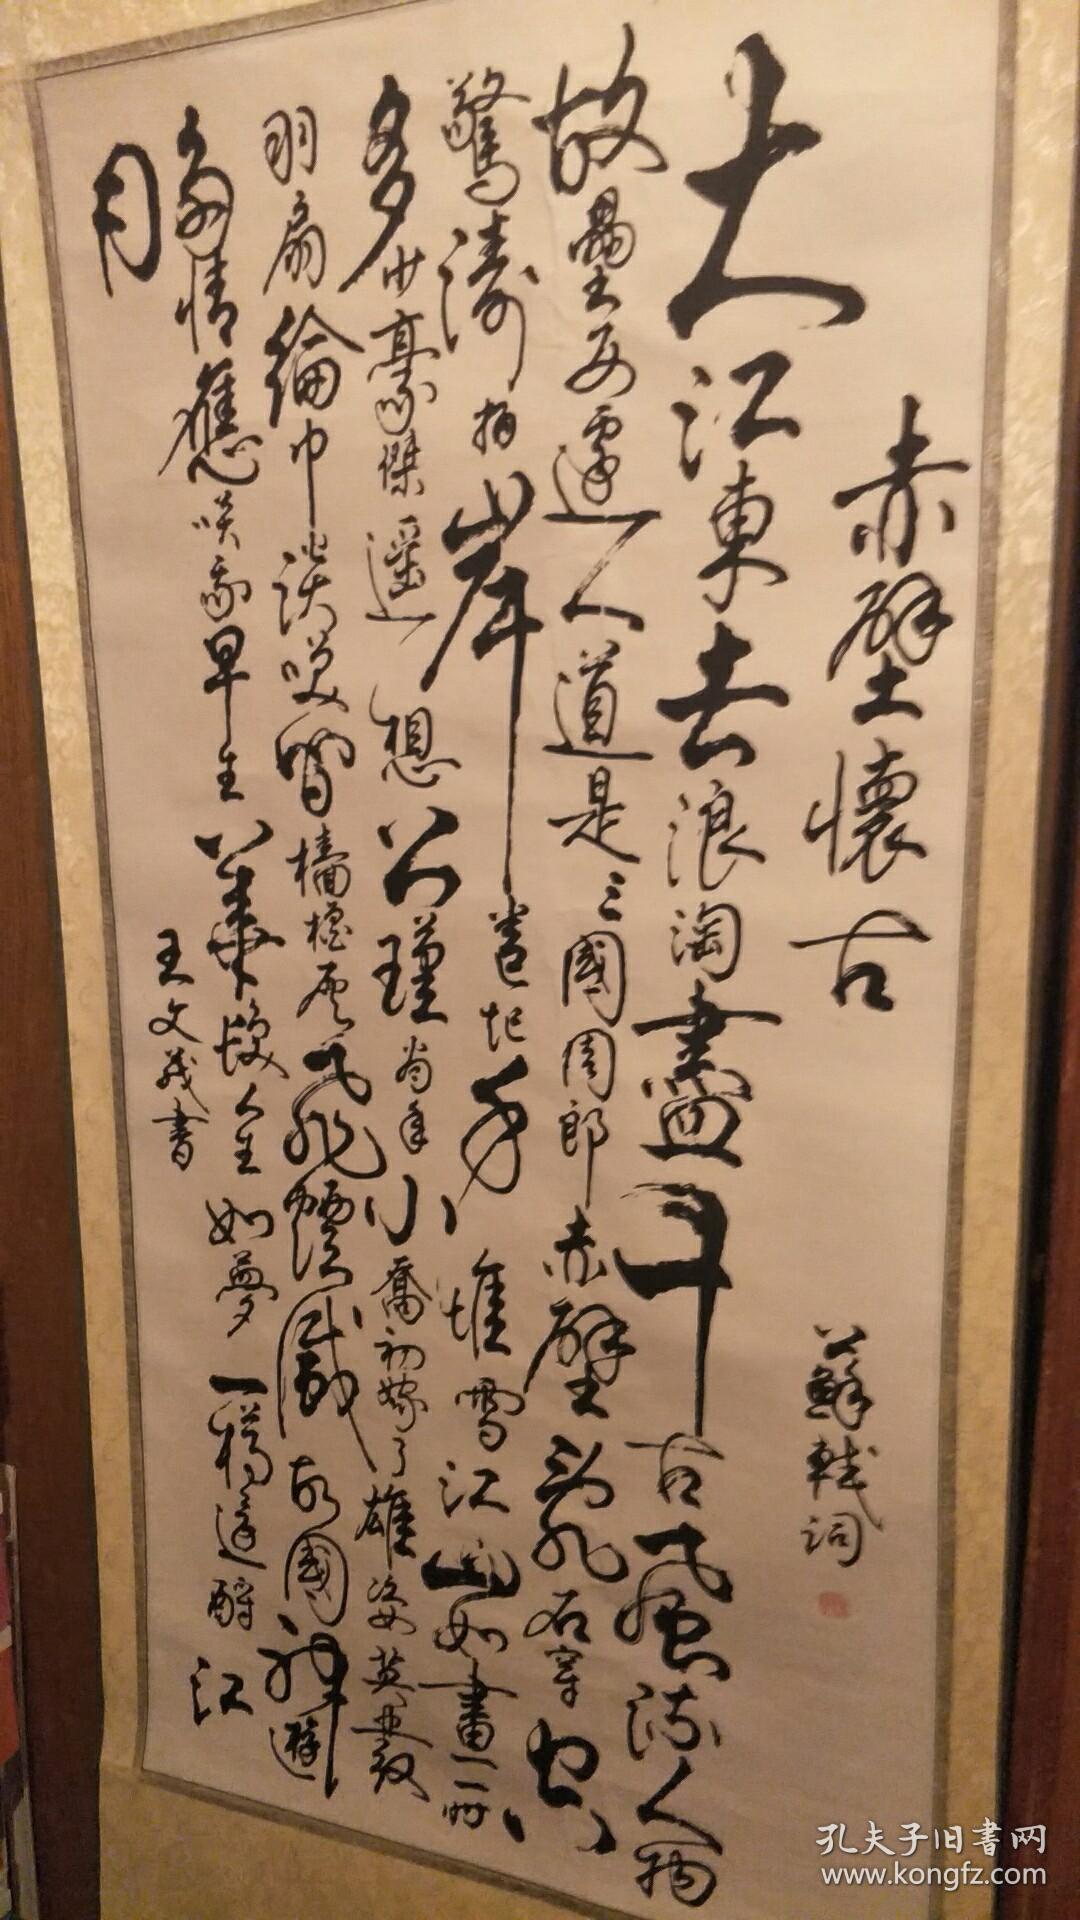 赤壁懷古 蘇軾詞
大江東去浪淘盡千古風流人物
故壘西邊人道是三國周郎赤壁亂石穿空
驚濤拍岸卷起千堆雪江山如畫一時
多少豪傑遙想公瑾當年小喬初嫁了雄姿英發
羽扇綸巾談笑間檣櫓灰飛煙滅故國神遊
多情應笑我早生華髮人生如夢一樽還酹江
月
王文 書
孔夫子旧書网
www.kongfz.com